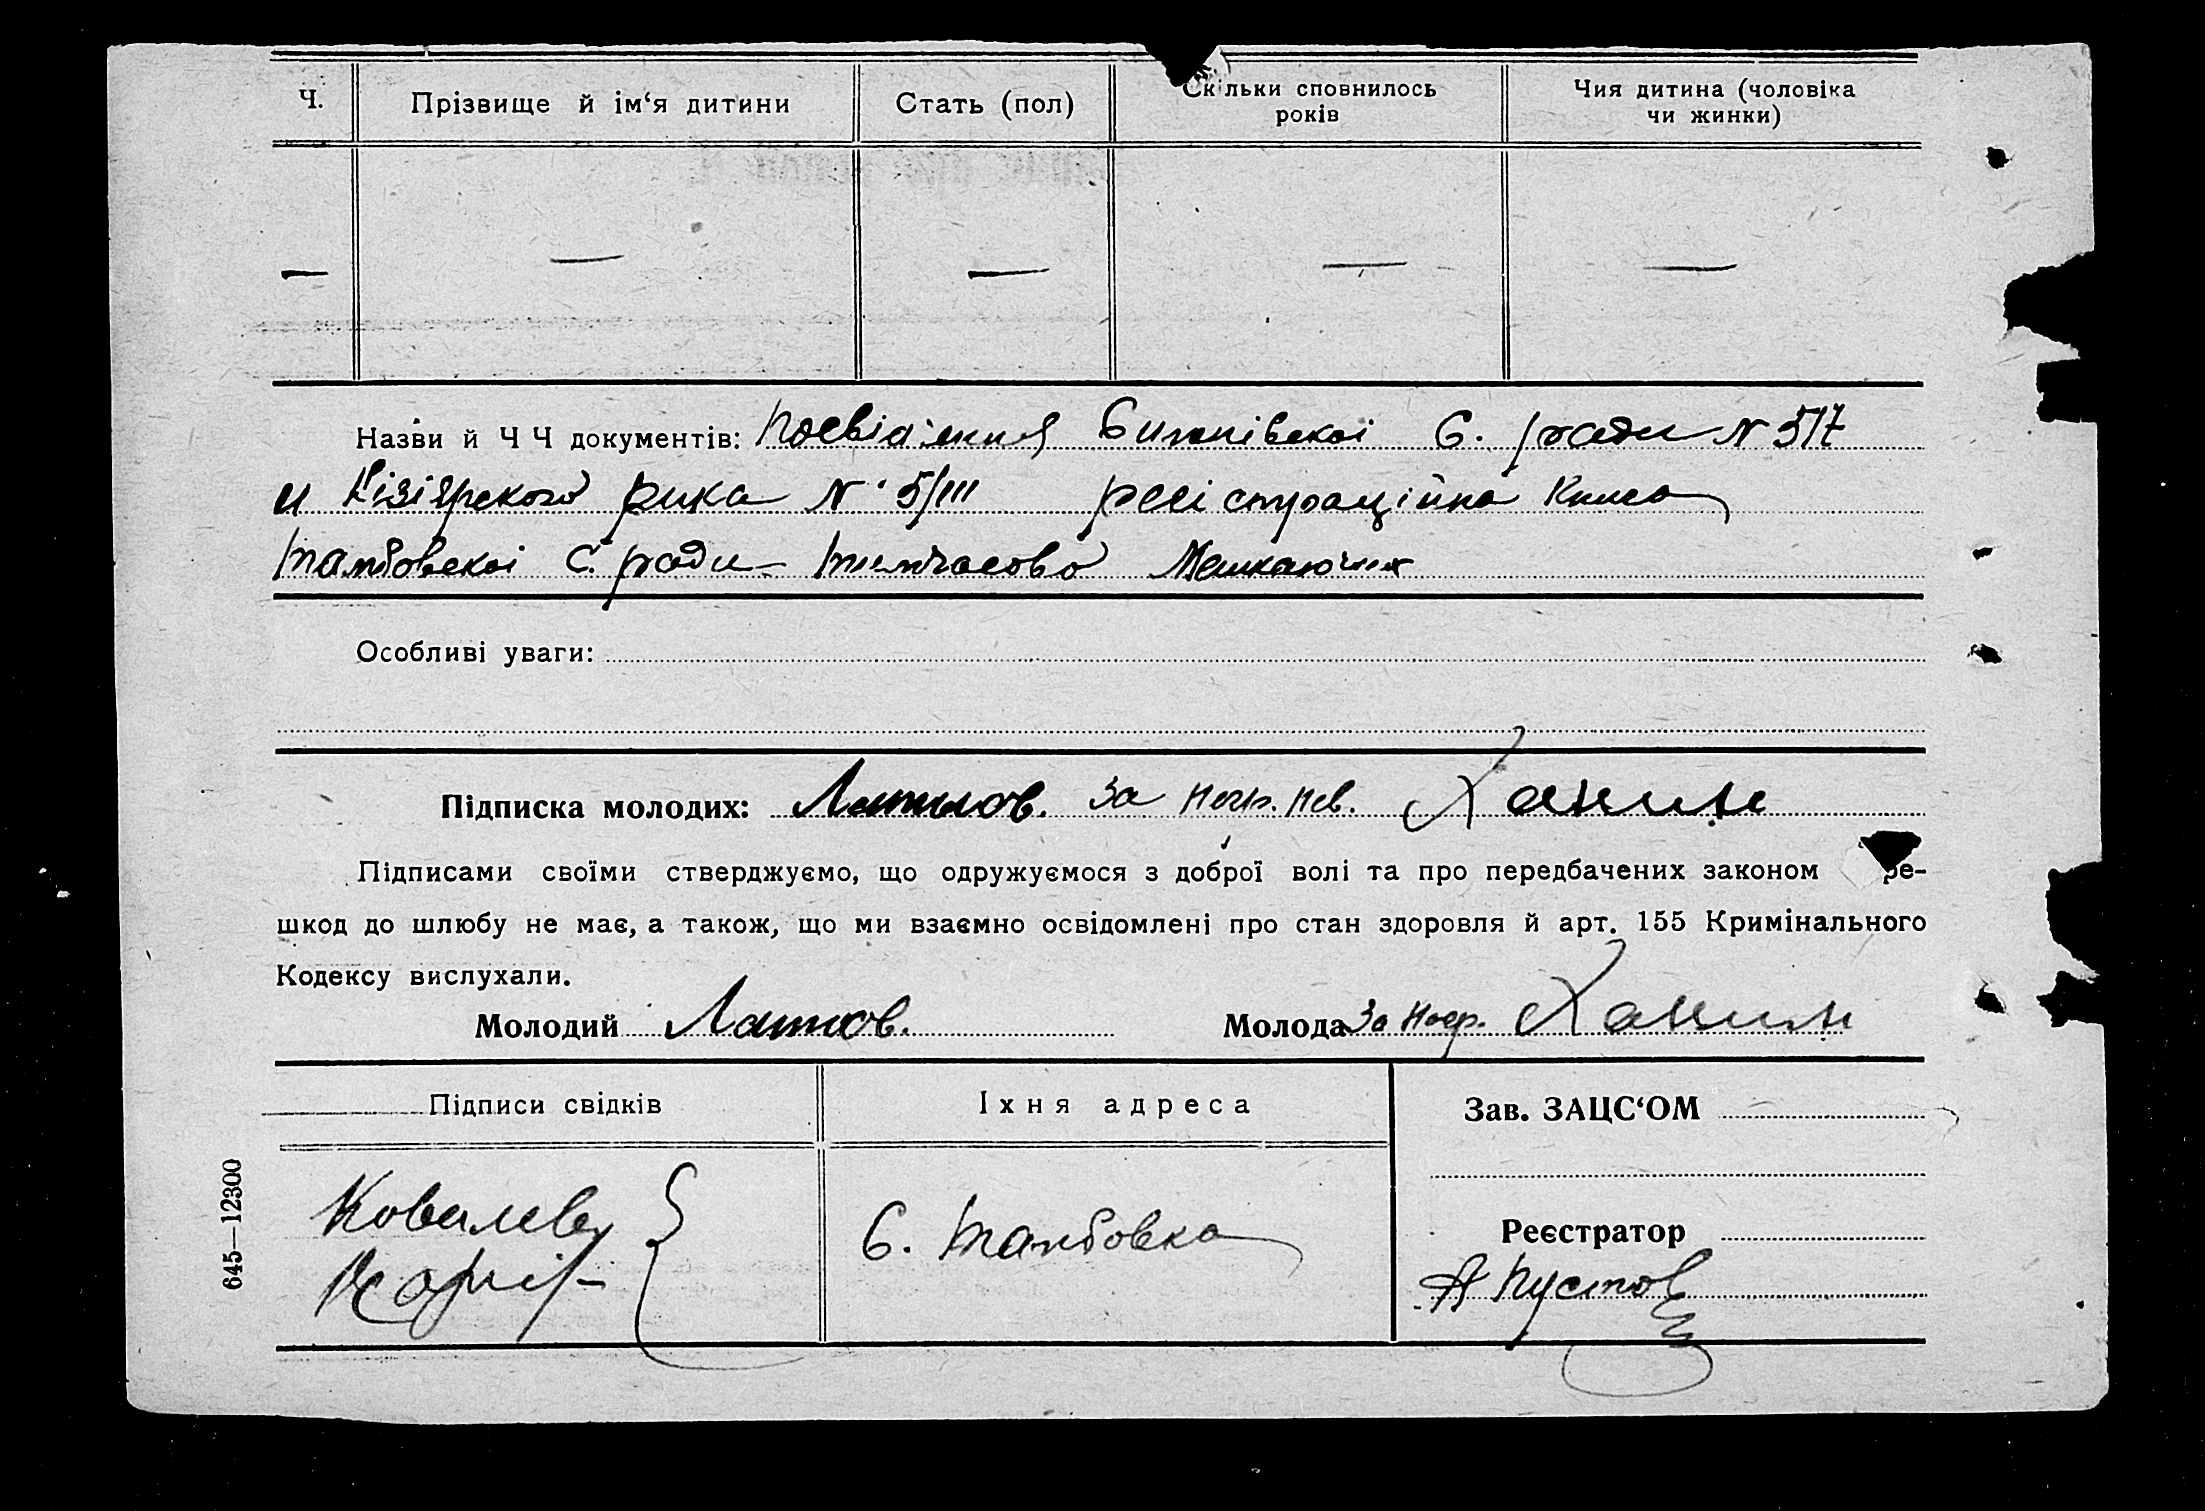 Ч. Прізвище й ім‘я дитини Стать (пол) Скільки сповнилось років Чия дитина (чоловіка чи жинки)
— — — — —
Назви й Ч Ч документів: Посвідіння С. ради № 517
и рика № 5/III реєістраційна Книга
Тамбовскоі С. ради Тимчасово Мешкаючих
Особливі уваги:
Підписка молодих: За Ханин
Підписами своїми стверджуємо, що одружуємося з доброї волі та про передбачених законом ре-
шкод до шлюбу не має, а також, що ми взаємно освідомлені про стан здоровля й арт. 155 Кримінального
Кодексу вислухали.
Молодий Молода За Ханин
Підписи свідків Їхня адреса Зав. ЗАЦС‘ОМ
645—12300
Реєстратор
С. Тамбовка
А Пустов